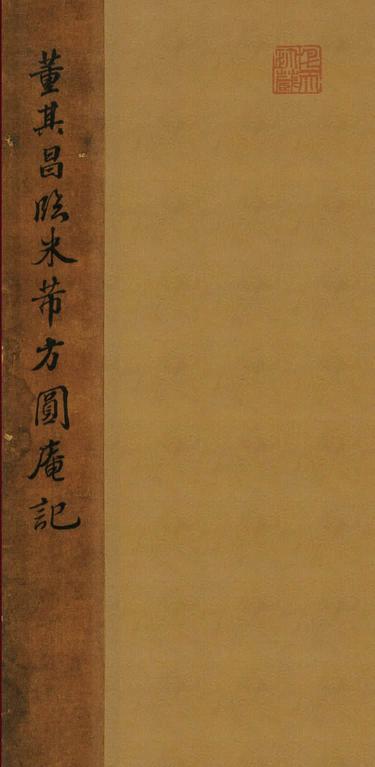 董其昌臨米芾方圓庵記